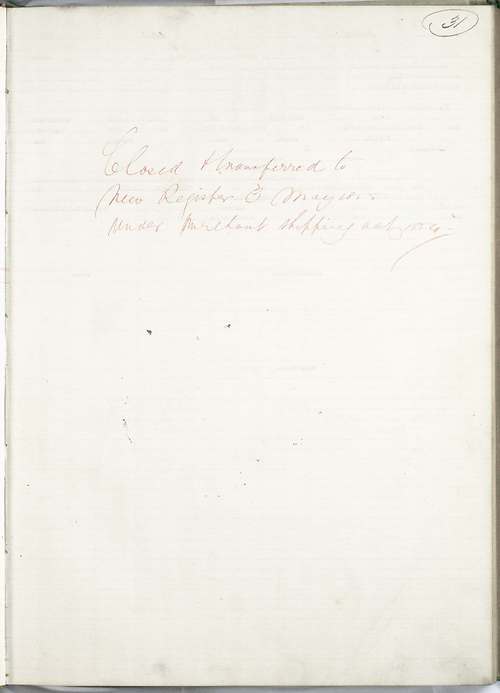 31
Closed & transferred to
New Register
under Merchant Shipping act